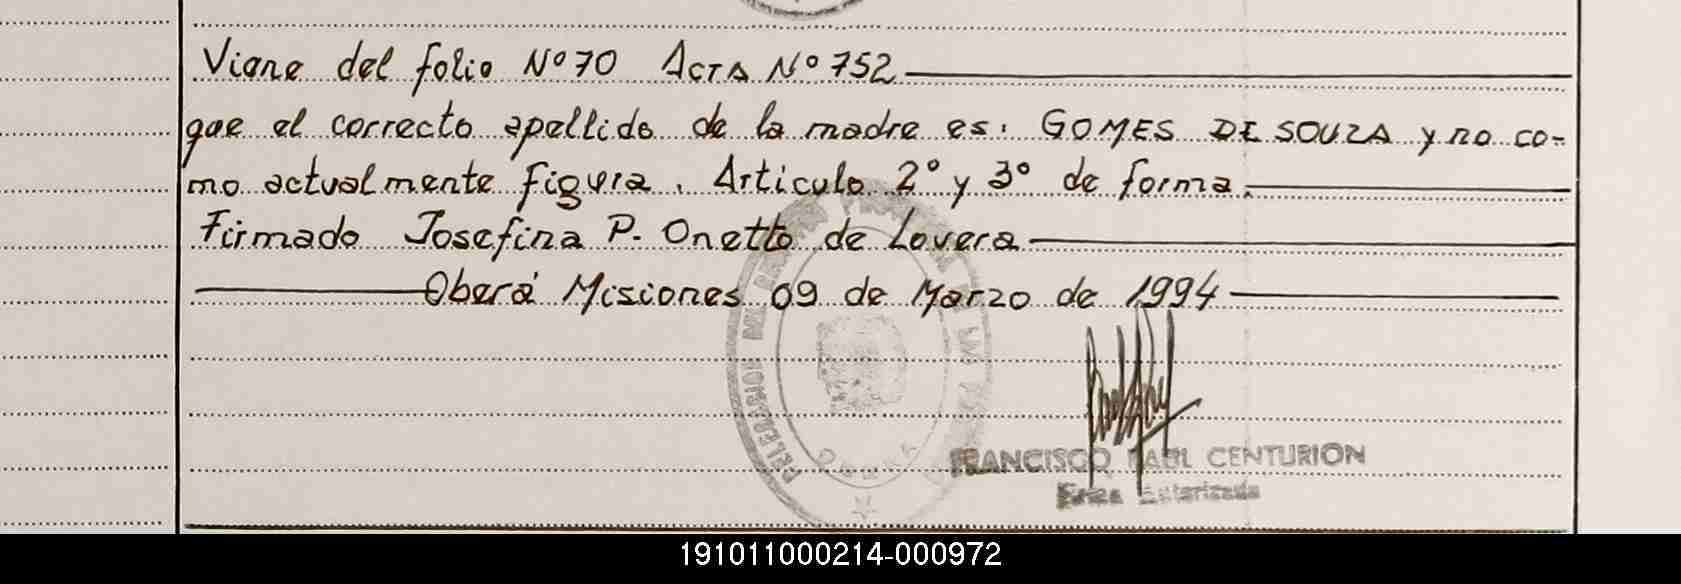 Viene del folio Nº 70 Acta Nº 752
que el correcto apellido de la madre es: GOMES DE SOUZA y no co-
mo actualmente figura. Articulo 2º y 3º de forma.
Firmado Josefina P. Onetto de Lovera
Oberá Misiones 09 de Marzo de 1994
FRANCISCO RAUL CENTURION
Firma Autorizada
191011000214-000972